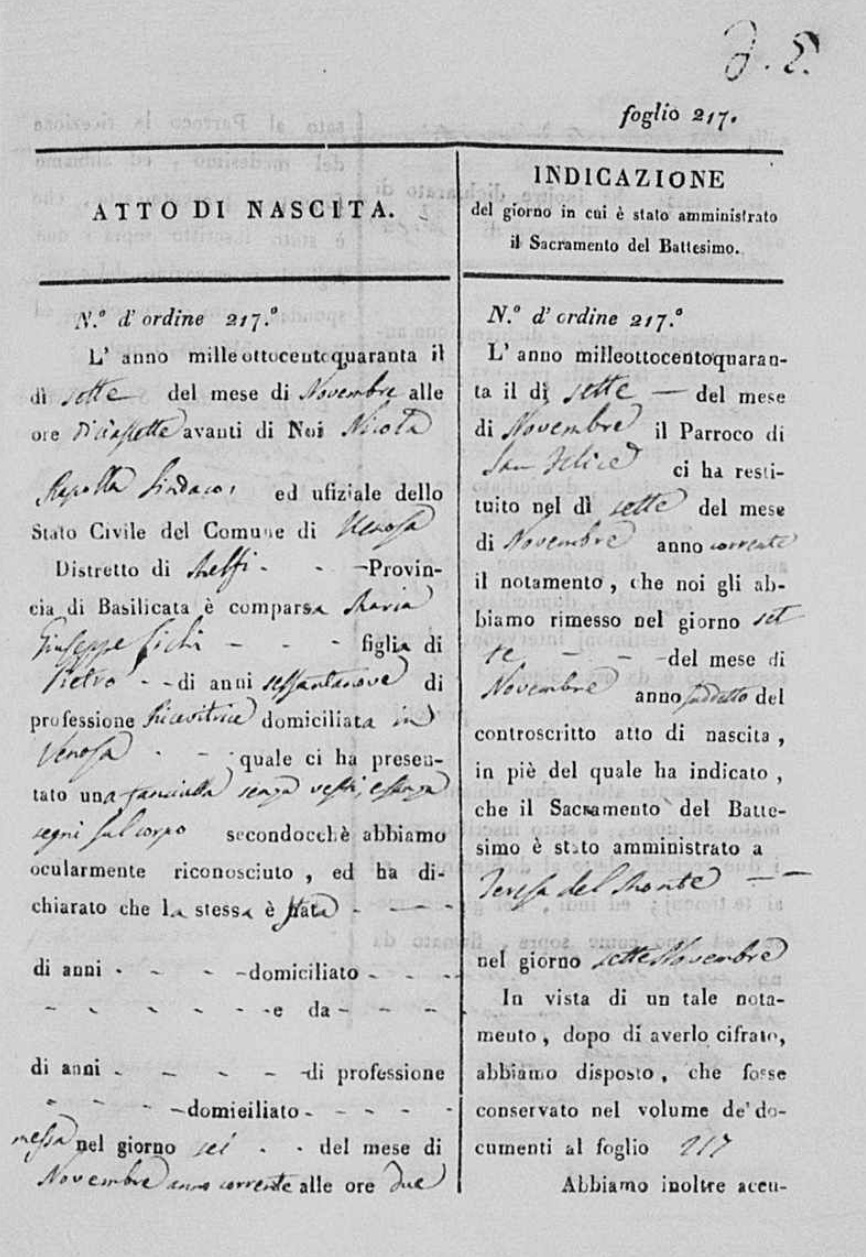 foglio 217.
ATTO DI NASCITA.
N.º d' ordine 217.º
L' anno milleottocentoquaranta il
dì sette del mese di Novembre alle
ore diciassette avanti di Noi Nicola
Rapolla Sindaco, ed ufiziale dello
Stato Civile del Comune di Venosa
Distretto di Melfi - - - Provin-
cia di Basilicata è comparsa Maria
Giuseppe Sichi - - - figlia di
Pietro - - di anni sessantanove di
professione Ricevitrice domiciliata in
Venosa - - quale ci ha presen-
tato una fanciulla senza vesti, e senza
segni sul corpo secondocchè abbiamo
ocularmente riconosciuto, ed ha di-
chiarato che la stessa è stata - - - -
di anni - - - - domiciliato - - - -
- - - - - - e da - - - -
di anni - - - - - di professione
- - - - domieiliato - - - - -
messa nel giorno sei - - del mese di
Novembre anno corrente alle ore due
INDICAZIONE
del giorno in cui è stato amministrato
il Sacramento del Battesimo.
N.º d' ordine 217.º
L' anno milleottocentoquaran-
ta il dì sette — del mese
di Novembre il Parroco di
San Felice ci ha resti-
tuito nel dì sette del mese
di Novembre anno corrente
il notamento, che noi gli ab-
biamo rimesso nel giorno set
te - - - del mese di
Novembre anno suddetto del
controscritto atto di nascita,
in piè del quale ha indicato,
che il Sacramento del Batte-
simo è stato amministrato a
Teresa del Monte — —
nel giorno sette Novembre
In vista di un tale nota-
mento, dopo di averlo cifrato,
abbiamo disposto, che fosse
conservato nel volume de' do-
cumenti al foglio 217
Abbiamo inoltre accu-